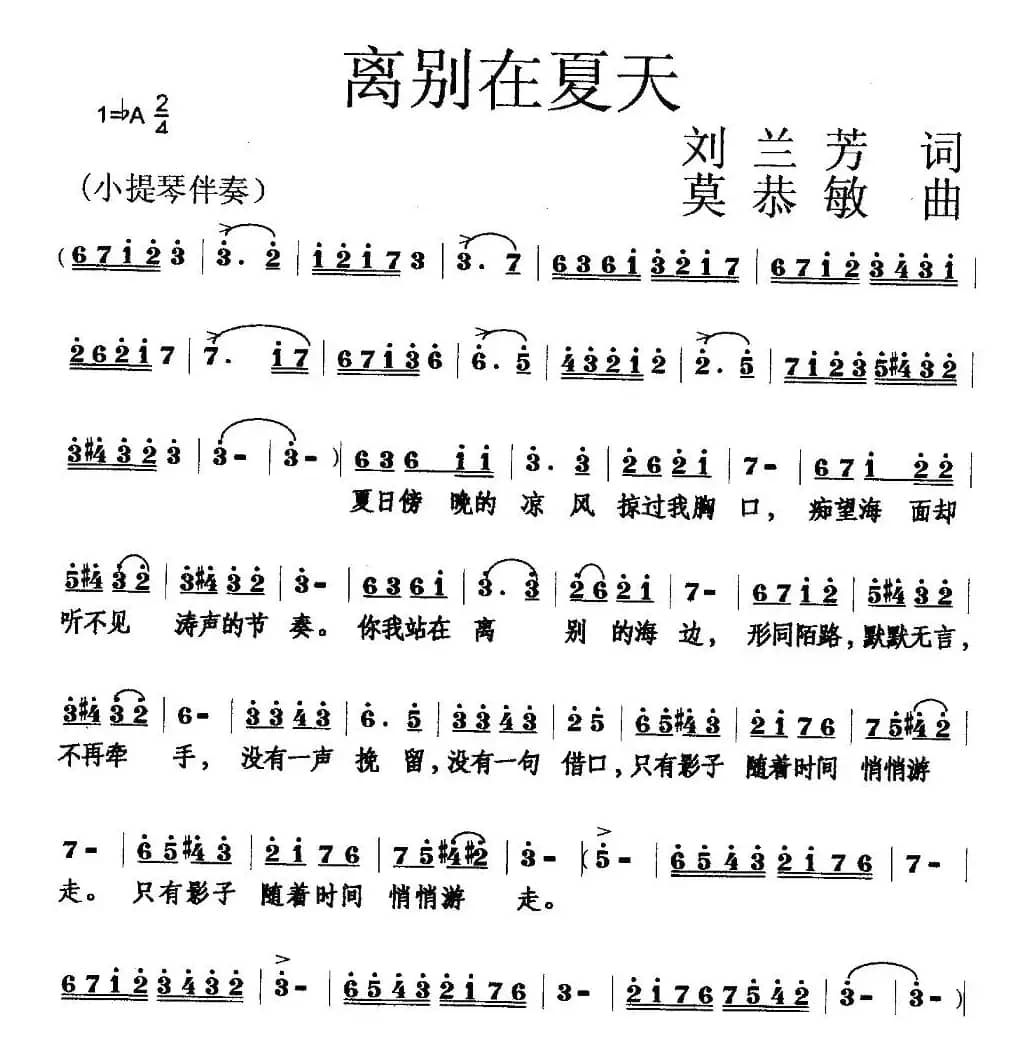 离别在夏天
1=♭A 2/4
刘兰芳 词
(小提琴伴奏)
莫恭敏 曲
( 6 7 1̇ 2̇ 3̇ | 3̇ . 2̇ | 1̇ 2̇ 1̇ 7 3 | 3̇ . 7 | 6 3 6 1̇ 3̇ 2̇ 1̇ 7 | 6 7 1̇ 2̇ 3̇ 4̇ 3̇ 1̇ |
2̇ 6 2̇ 1̇ 7 | 7 . 1̇ 7 | 6 7 1̇ 3̇ 6 | 6̇ . 5̇ | 4̇ 3̇ 2̇ 1̇ 2̇ | 2̇ . 5̇ | 7 1̇ 2̇ 3̇ 5̇ #4̇ 3̇ 2̇ |
3̇ #4̇ 3̇ 2̇ 3̇ | 3̇ - | 3̇ - ) | 6 3 6 1̇ 1̇ | 3̇ . 3̇ | 2̇ 6 2̇ 1̇ | 7 - | 6 7 1̇ 2̇ 2̇ |
夏日傍 晚的 凉 风 掠过我胸 口， 痴望海 面却
5̇ #4̇ 3̇ 2̇ | 3̇ #4̇ 3̇ 2̇ | 3̇ - | 6 3 6 1̇ | 3̇ . 3̇ | 2̇ 6 2̇ 1̇ | 7 - | 6 7 1̇ 2̇ | 5̇ #4̇ 3̇ 2̇ |
听不见 涛声的节 奏。 你我站在 离 别 的海 边， 形同陌路，默默无言，
3̇ #4̇ 3̇ 2̇ | 6 - | 3̇ 3̇ 4̇ 3̇ | 6̇ . 5̇ | 3̇ 3̇ 4̇ 3̇ | 2̇ 5̇ | 6̇ 5̇ #4̇ 3̇ | 2̇ 1̇ 7 6 | 7 5̇ #4̇ 2̇ |
不再牵 手， 没有一声 挽 留，没有一句 借口，只有影子 随着时间 悄悄游
7 - | 6̇ 5̇ #4̇ 3̇ | 2̇ 1̇ 7 6 | 7 5̇ #4̇ #2̇ | 3̇ - |( 5̇ - | 6̇ 5̇ 4̇ 3̇ 2̇ 1̇ 7 6 | 7 - |
走。 只有影子 随着时间 悄悄游 走。
6 7 1̇ 2̇ 3̇ 4̇ 3̇ 2̇ | 3̇ - | 6̇ 5̇ 4̇ 3̇ 2̇ 1̇ 7 6 | 3 - | 2̇ 1̇ 7 6 7 5̇ 4̇ 2̇ | 3̇ - | 3̇ - )|